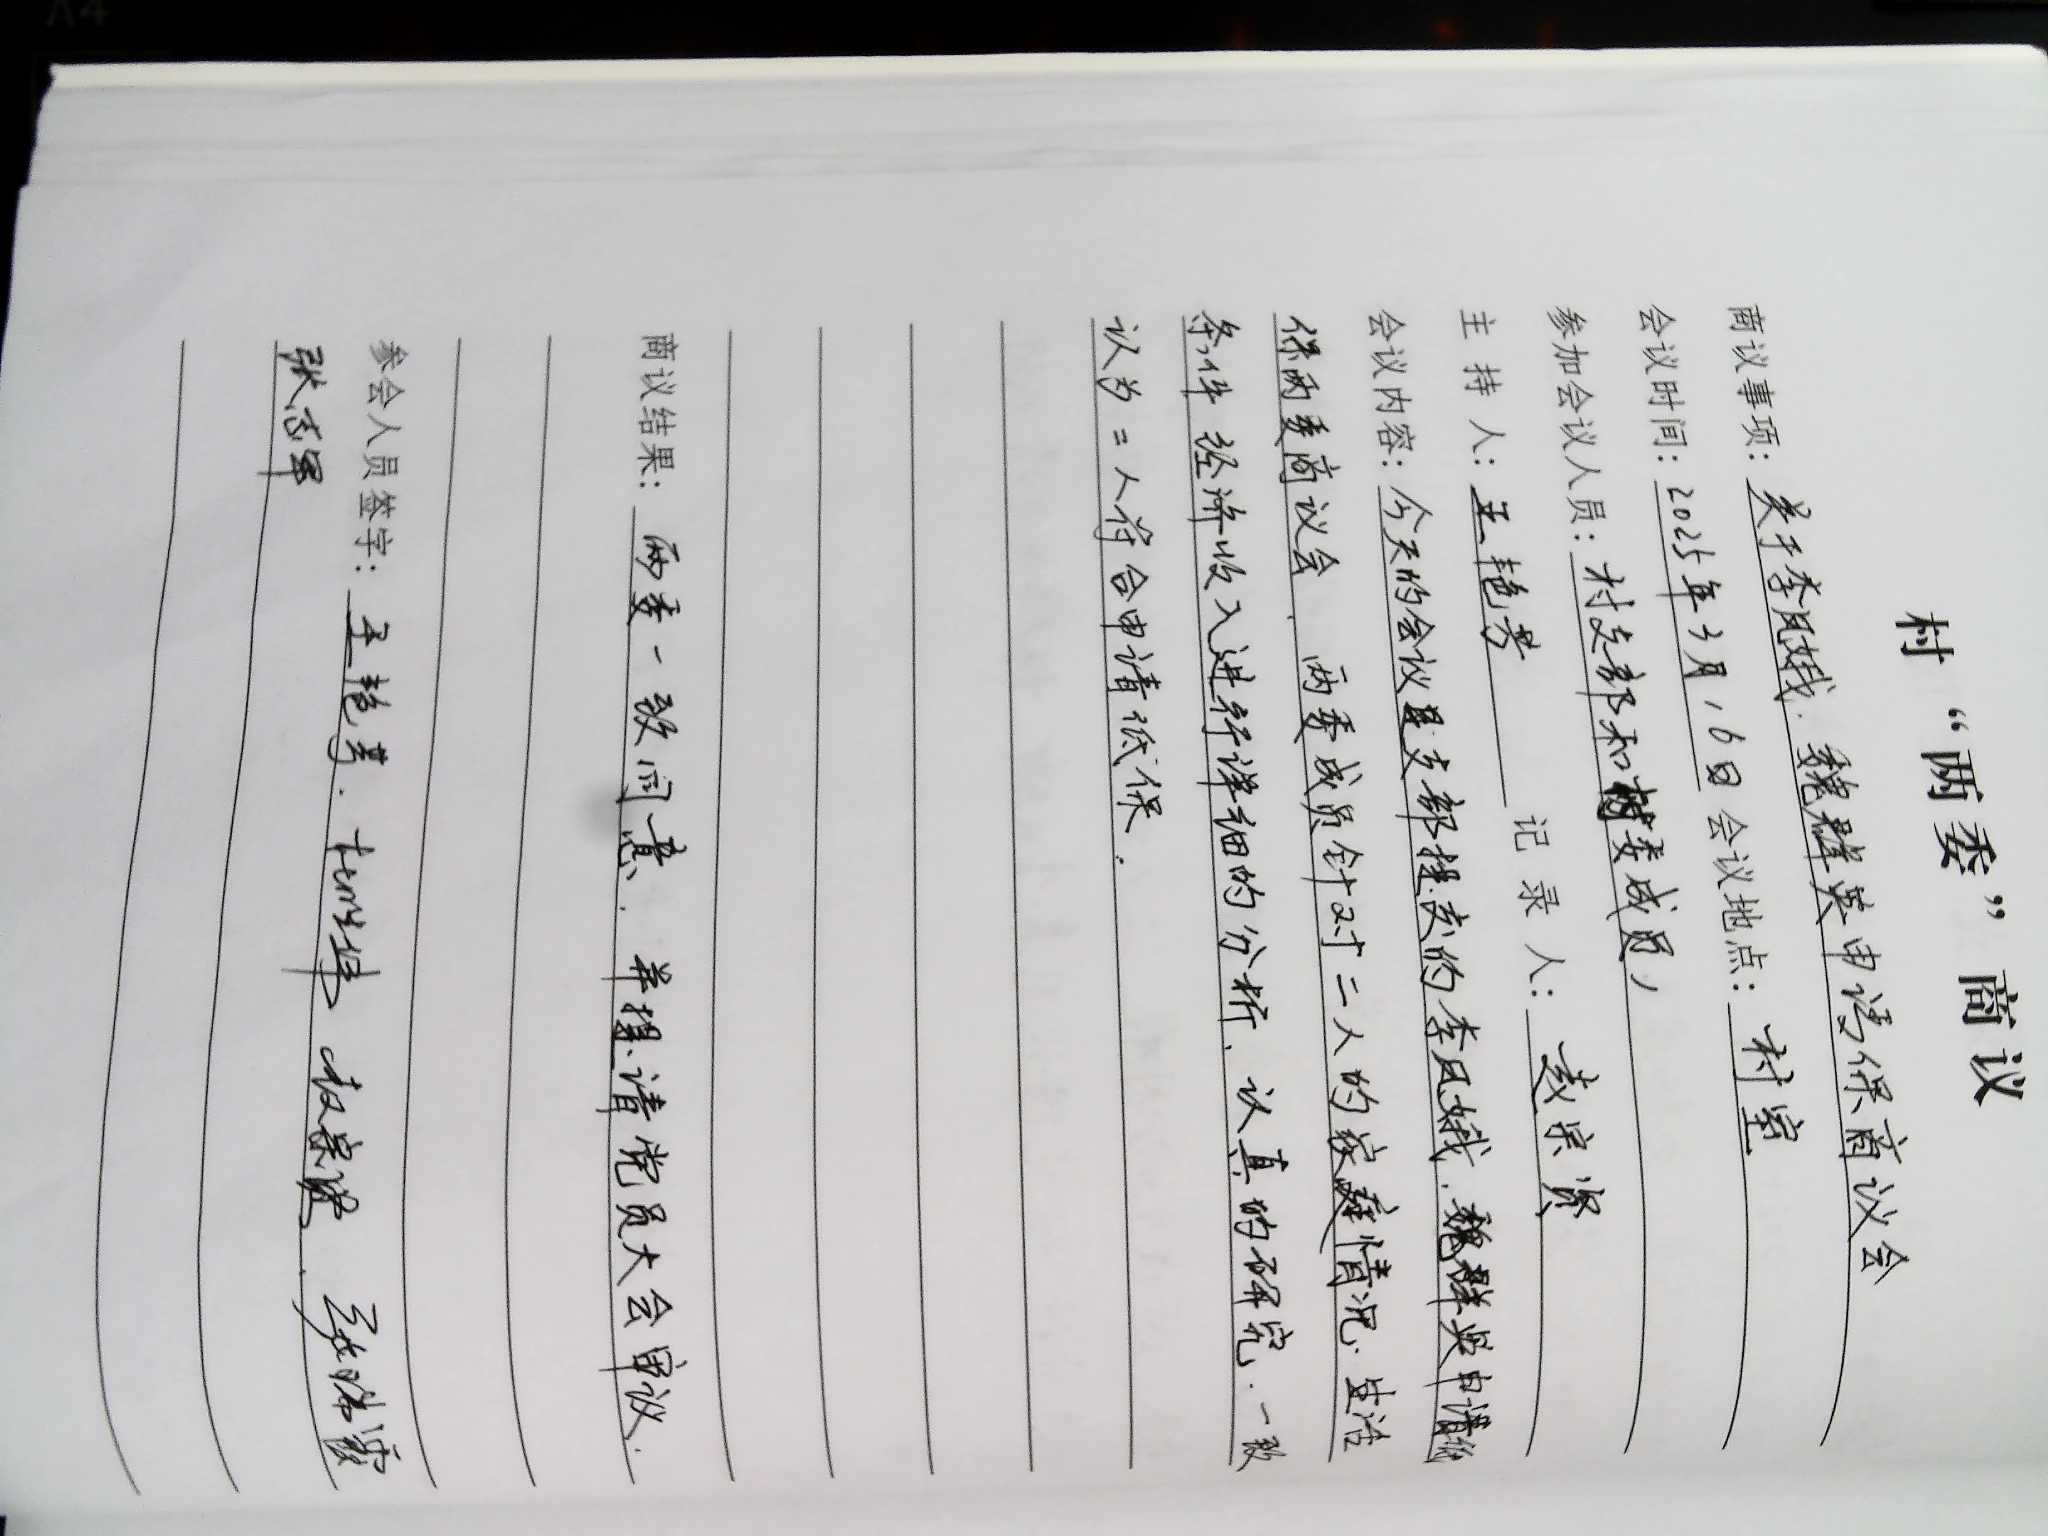 村“两委”商议
商议事项：关于李凤娥、魏群英申请保商议会
会议时间：2025年3月16日 会议地点：村室
参加会议人员：村支部和村委成员，
主持人：王艳芳 记录人：宗
会议内容：今天的会议是支部提交的李凤娥、魏群英申请低
保两委商议会，两委成员针对二人的家庭情况、生活
条件 经济收入进行详细的分析、认真的研究，一致
认为二人符合申请低保．
商议结果：两委一致同意．并提请党员大会审议．
参会人员签字：王艳芳．
张志军